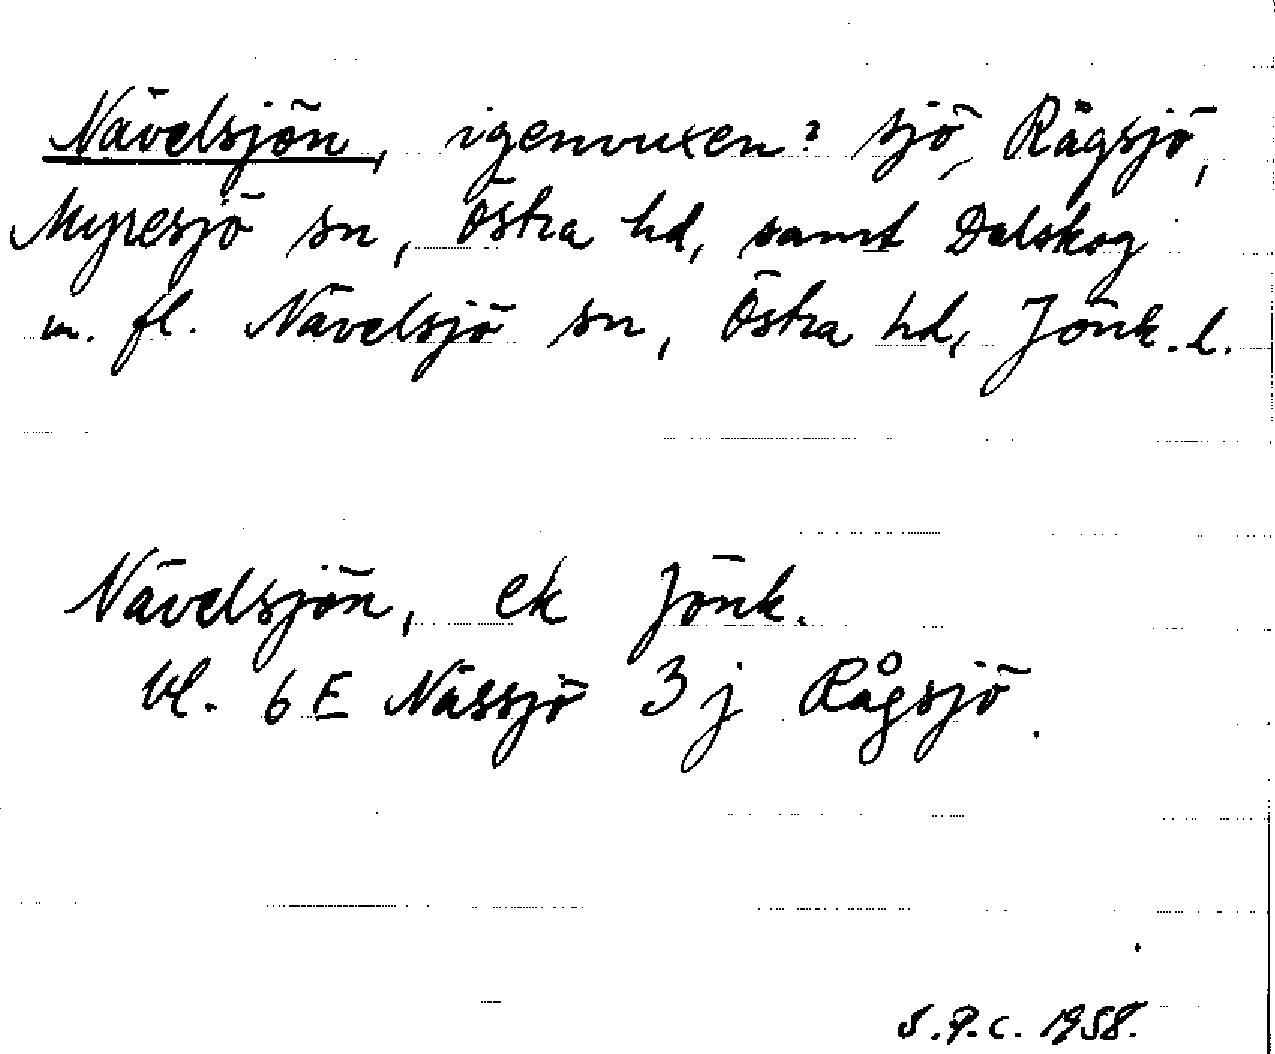 Nävelsjön, igenvuxen? sjö, Rågsjö,
Myresjö sn, Östra hd, samt Dalskog
m. fl. Nävelsjö sn, Östra hd, Jönk. l.
Nävelsjön, ek Jönk.
bl. 6 E Nässjö 3 j Rågsjö.
S.P.C. 1958.